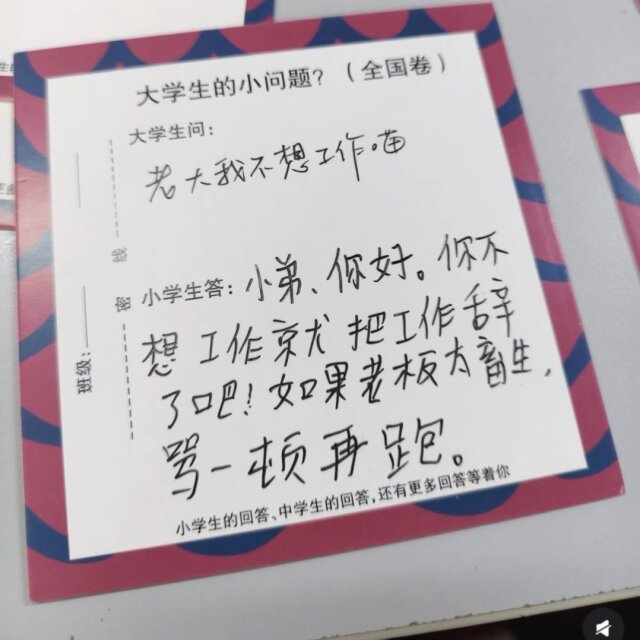 大学生的小问题?(全国卷)
大学生问:
老大我不想工作喵
小学生答:小弟、你好。你不
想工作就把工作辞
了吧!如果老板太畜生,
骂一顿再跑。
小学生的回答、中学生的回答,还有更多回答等着你
班级:
密
线